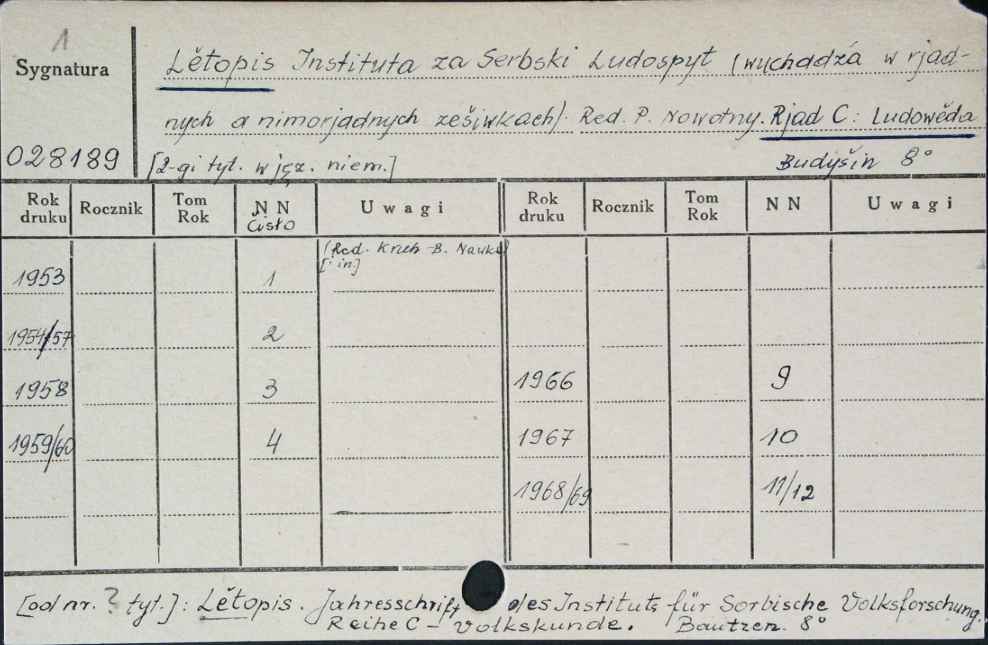 1
Sygnatura
028189
Lětopis Instituta za Serbski Ludospyt (wuchadźa w rjad-
nych a nimorjadnych zešiwkach). Red. P. Nowotny. Rjad C: Ludowěda
[2-gi tyt. w jęz. niem.] Budyšin 8°
Rok druku Rocznik Tom Rok N N Uwagi Rok druku Rocznik Tom Rok N N Uwagi
čisło
(Red. B. Nawka)
[i in.]
1953 1
1954/57 2
1958 3 1966 9
1959/60 4 1967 10
1968/69 11/12
[od nr. ? tyt.]: Lětopis. Jahresschrift des Instituts für Sorbische Volksforschung.
Reihe C – Volkskunde. Bautzen. 8°